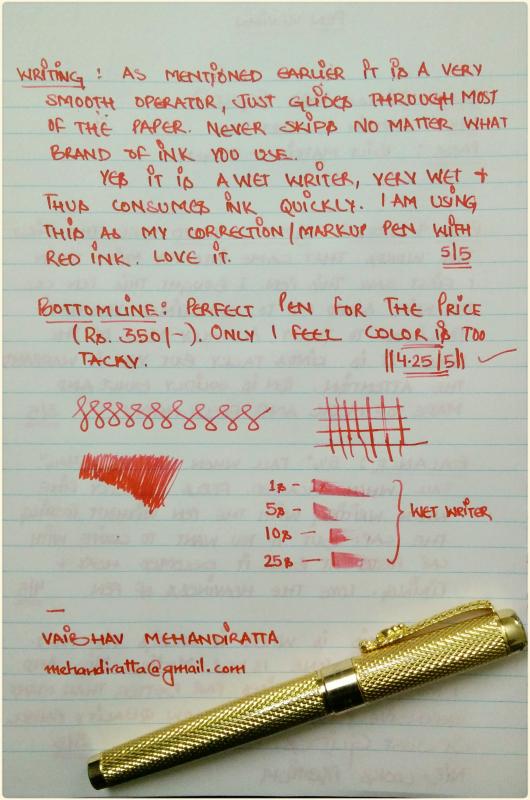 WRITING : AS MENTIONED EARLIER IT IS A VERY
SMOOTH OPERATOR, JUST GLIDES THROUGH MOST
OF THE PAPER. NEVER SKIPS NO MATTER WHAT
BRAND OF INK YOU USE.
YES IT IS A WET WRITER, VERY WET +
THUS CONSUMES INK QUICKLY. I AM USING
THIS AS MY CORRECTION/MARKUP PEN WITH
RED INK. LOVE IT. 5/5
BOTTOMLINE: PERFECT PEN FOR THE PRICE
(RS. 350/-). ONLY I FEEL COLOR IS TOO
TACKY. ||4.25/5|| ✓
1s -
5s -
10s -
25s -
WET WRITER
—
VAIBHAV MEHANDIRATTA
mehandiratta@gmail.com